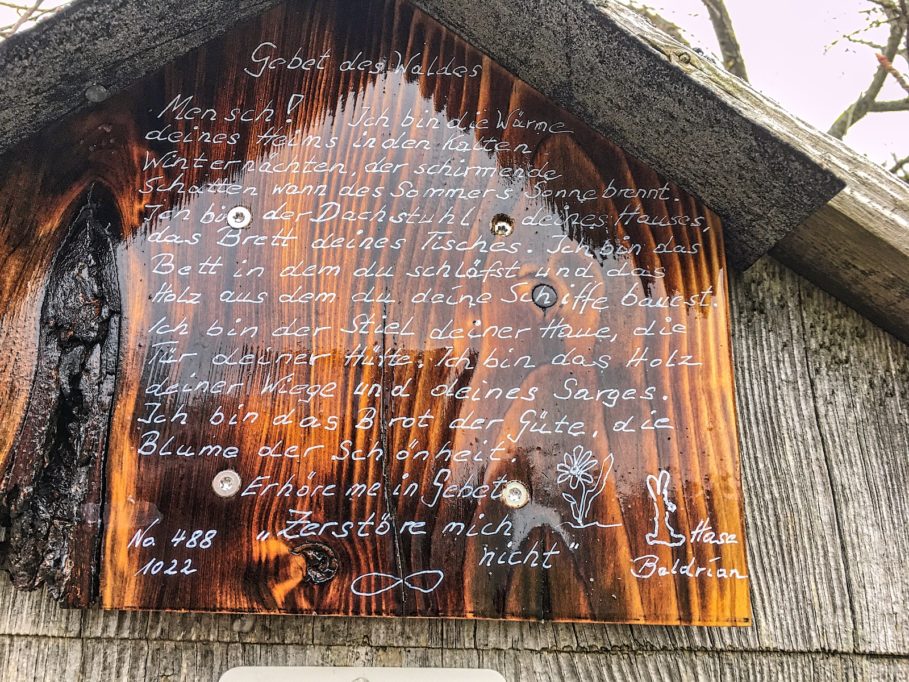 Gebet des Waldes
Mensch! Ich bin die Wärme
deines Heims in den kalten
Winternächten, der schirmende
Schatten wann des Sommers Sonne brennt.
Ich bin der Dachstuhl deines Hauses,
das Brett deines Tisches. Ich bin das
Bett in dem du schläfst und das
Holz aus dem du deine Schiffe bauest.
Ich bin der Stiel deiner Haue, die
Tür deiner Hütte. Ich bin das Holz
deiner Wiege und deines Sarges.
Ich bin das Brot der Güte, die
Blume der Schönheit.
Erhöre mein Gebet
„Zerstöre mich
nicht"
No. 488
1022
Hase
Baldrian